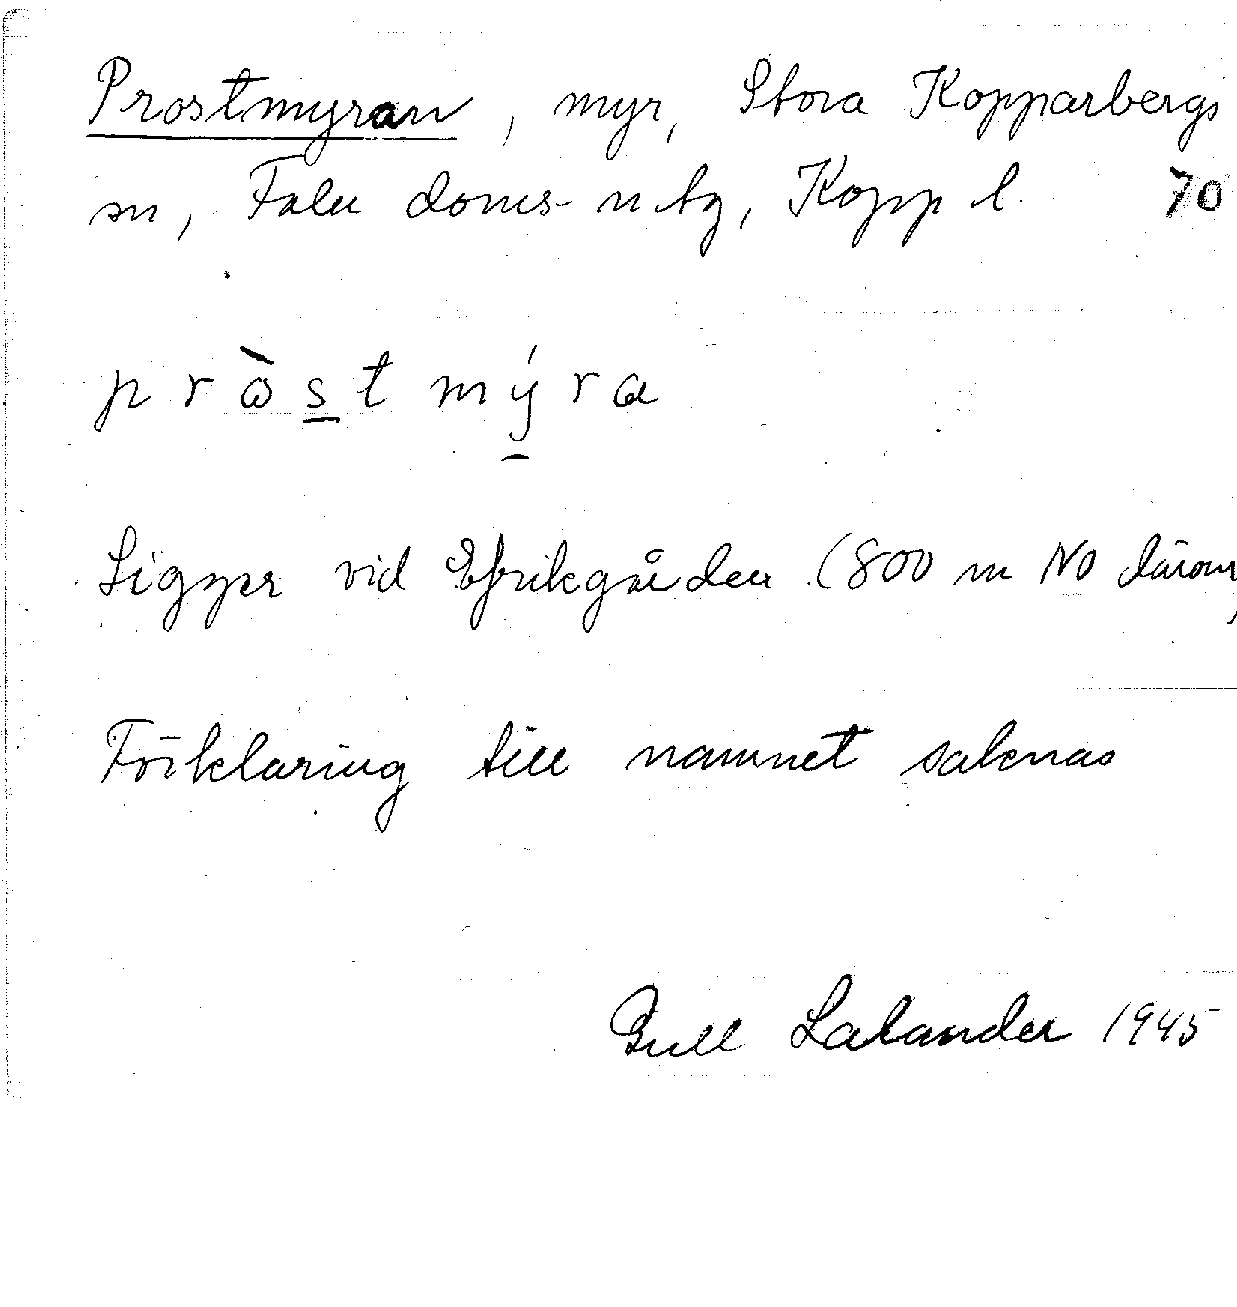 Prostmyran, myr, Stora Kopparbergs
sn, Falu doms- o tg, Kopp l. 70
pròstmýra
Ligger vid Efrikgården (800 m NO därom)
Förklaring till namnet saknas
Gull Lalander 1945